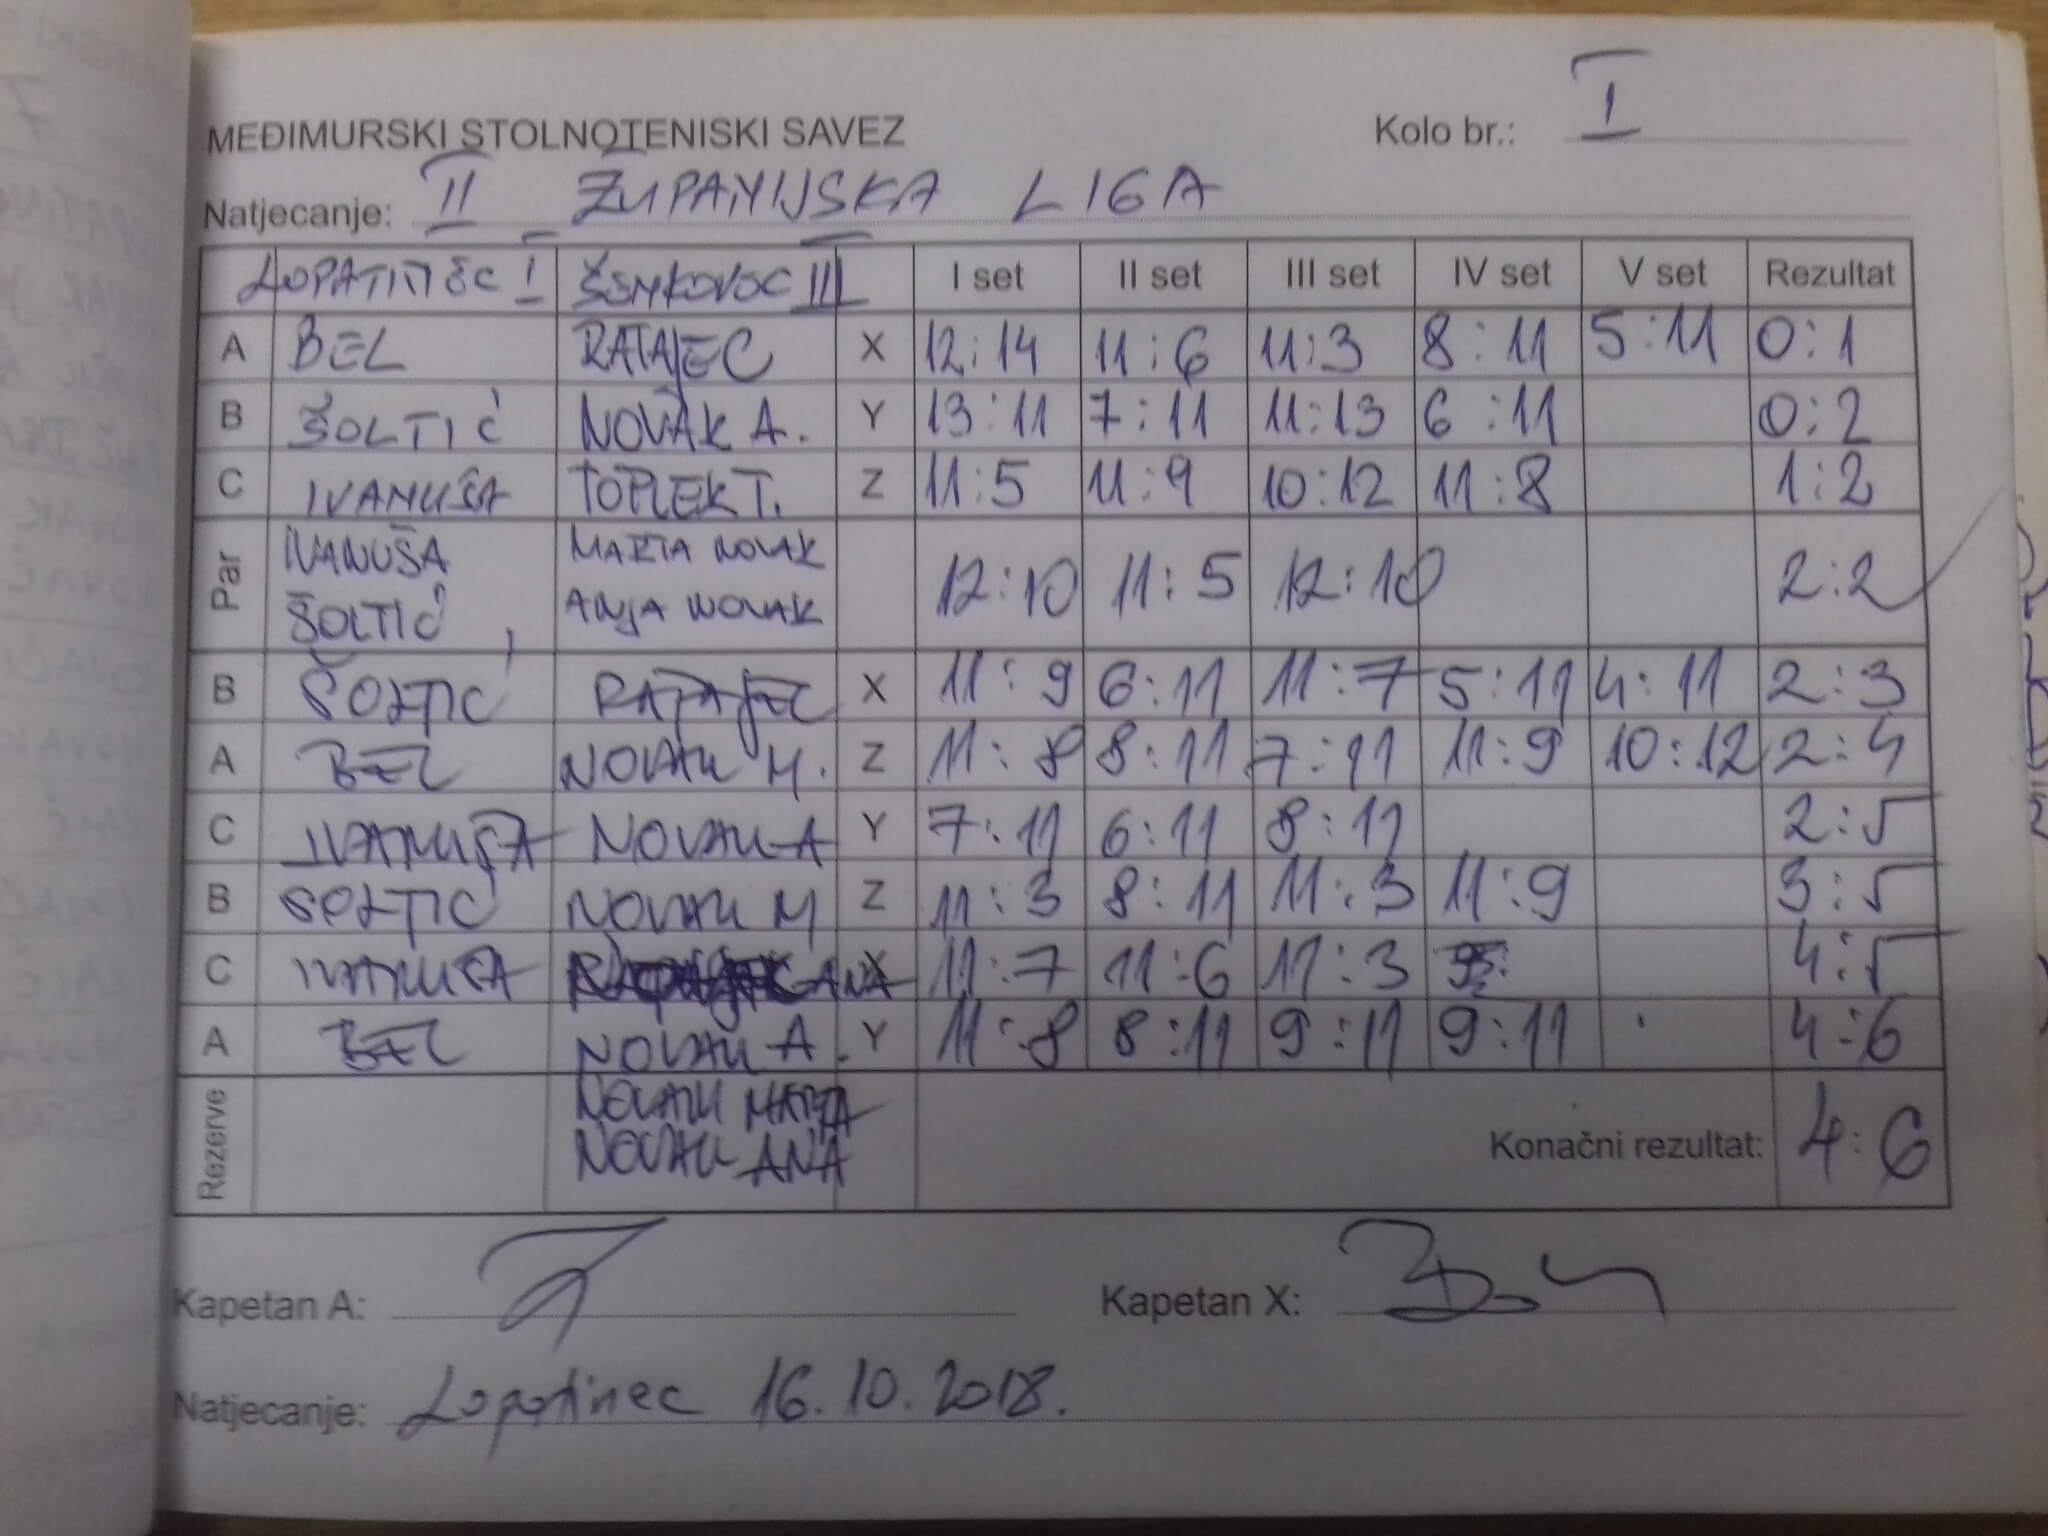 MEĐIMURSKI STOLNOTENISKI SAVEZ Kolo br.: I
Natjecanje: II ŽUPANIJSKA LIGA
LOPATINEC I ŠENKOVEC III I set II set III set IV set V set Rezultat
A BEL RATAJEC X 12:14 11:6 11:3 8:11 5:11 0:1
B ŠOLTIĆ NOVAK A. Y 13:11 7:11 11:13 6:11 0:2
C IVANUŠA TOPLEK T. Z 11:5 11:9 10:12 11:8 1:2
Par IVANUŠA ŠOLTIĆ MARTA NOVAK ANJA NOVAK 12:10 11:5 12:10 2:2
B ŠOLTIĆ RATAJEC X 11:9 6:11 11:7 5:11 4:11 2:3
A BEL NOVAK M. Z 11:8 8:11 7:11 11:9 10:12 2:4
C IVANUŠA NOVAK A Y 7:11 6:11 8:11 2:5
B ŠOLTIĆ NOVAK M Z 11:3 8:11 11:3 11:9 3:5
C IVANUŠA ANA X 11:7 11:6 11:3 4:5
A BEL NOVAK A. Y 11:8 8:11 9:11 9:11 4:6
Rezerve NOVAK MARTA
NOVAK ANA
Konačni rezultat: 4:6
Kapetan A: Kapetan X:
Natjecanje: Lopatinec 16.10.2018.